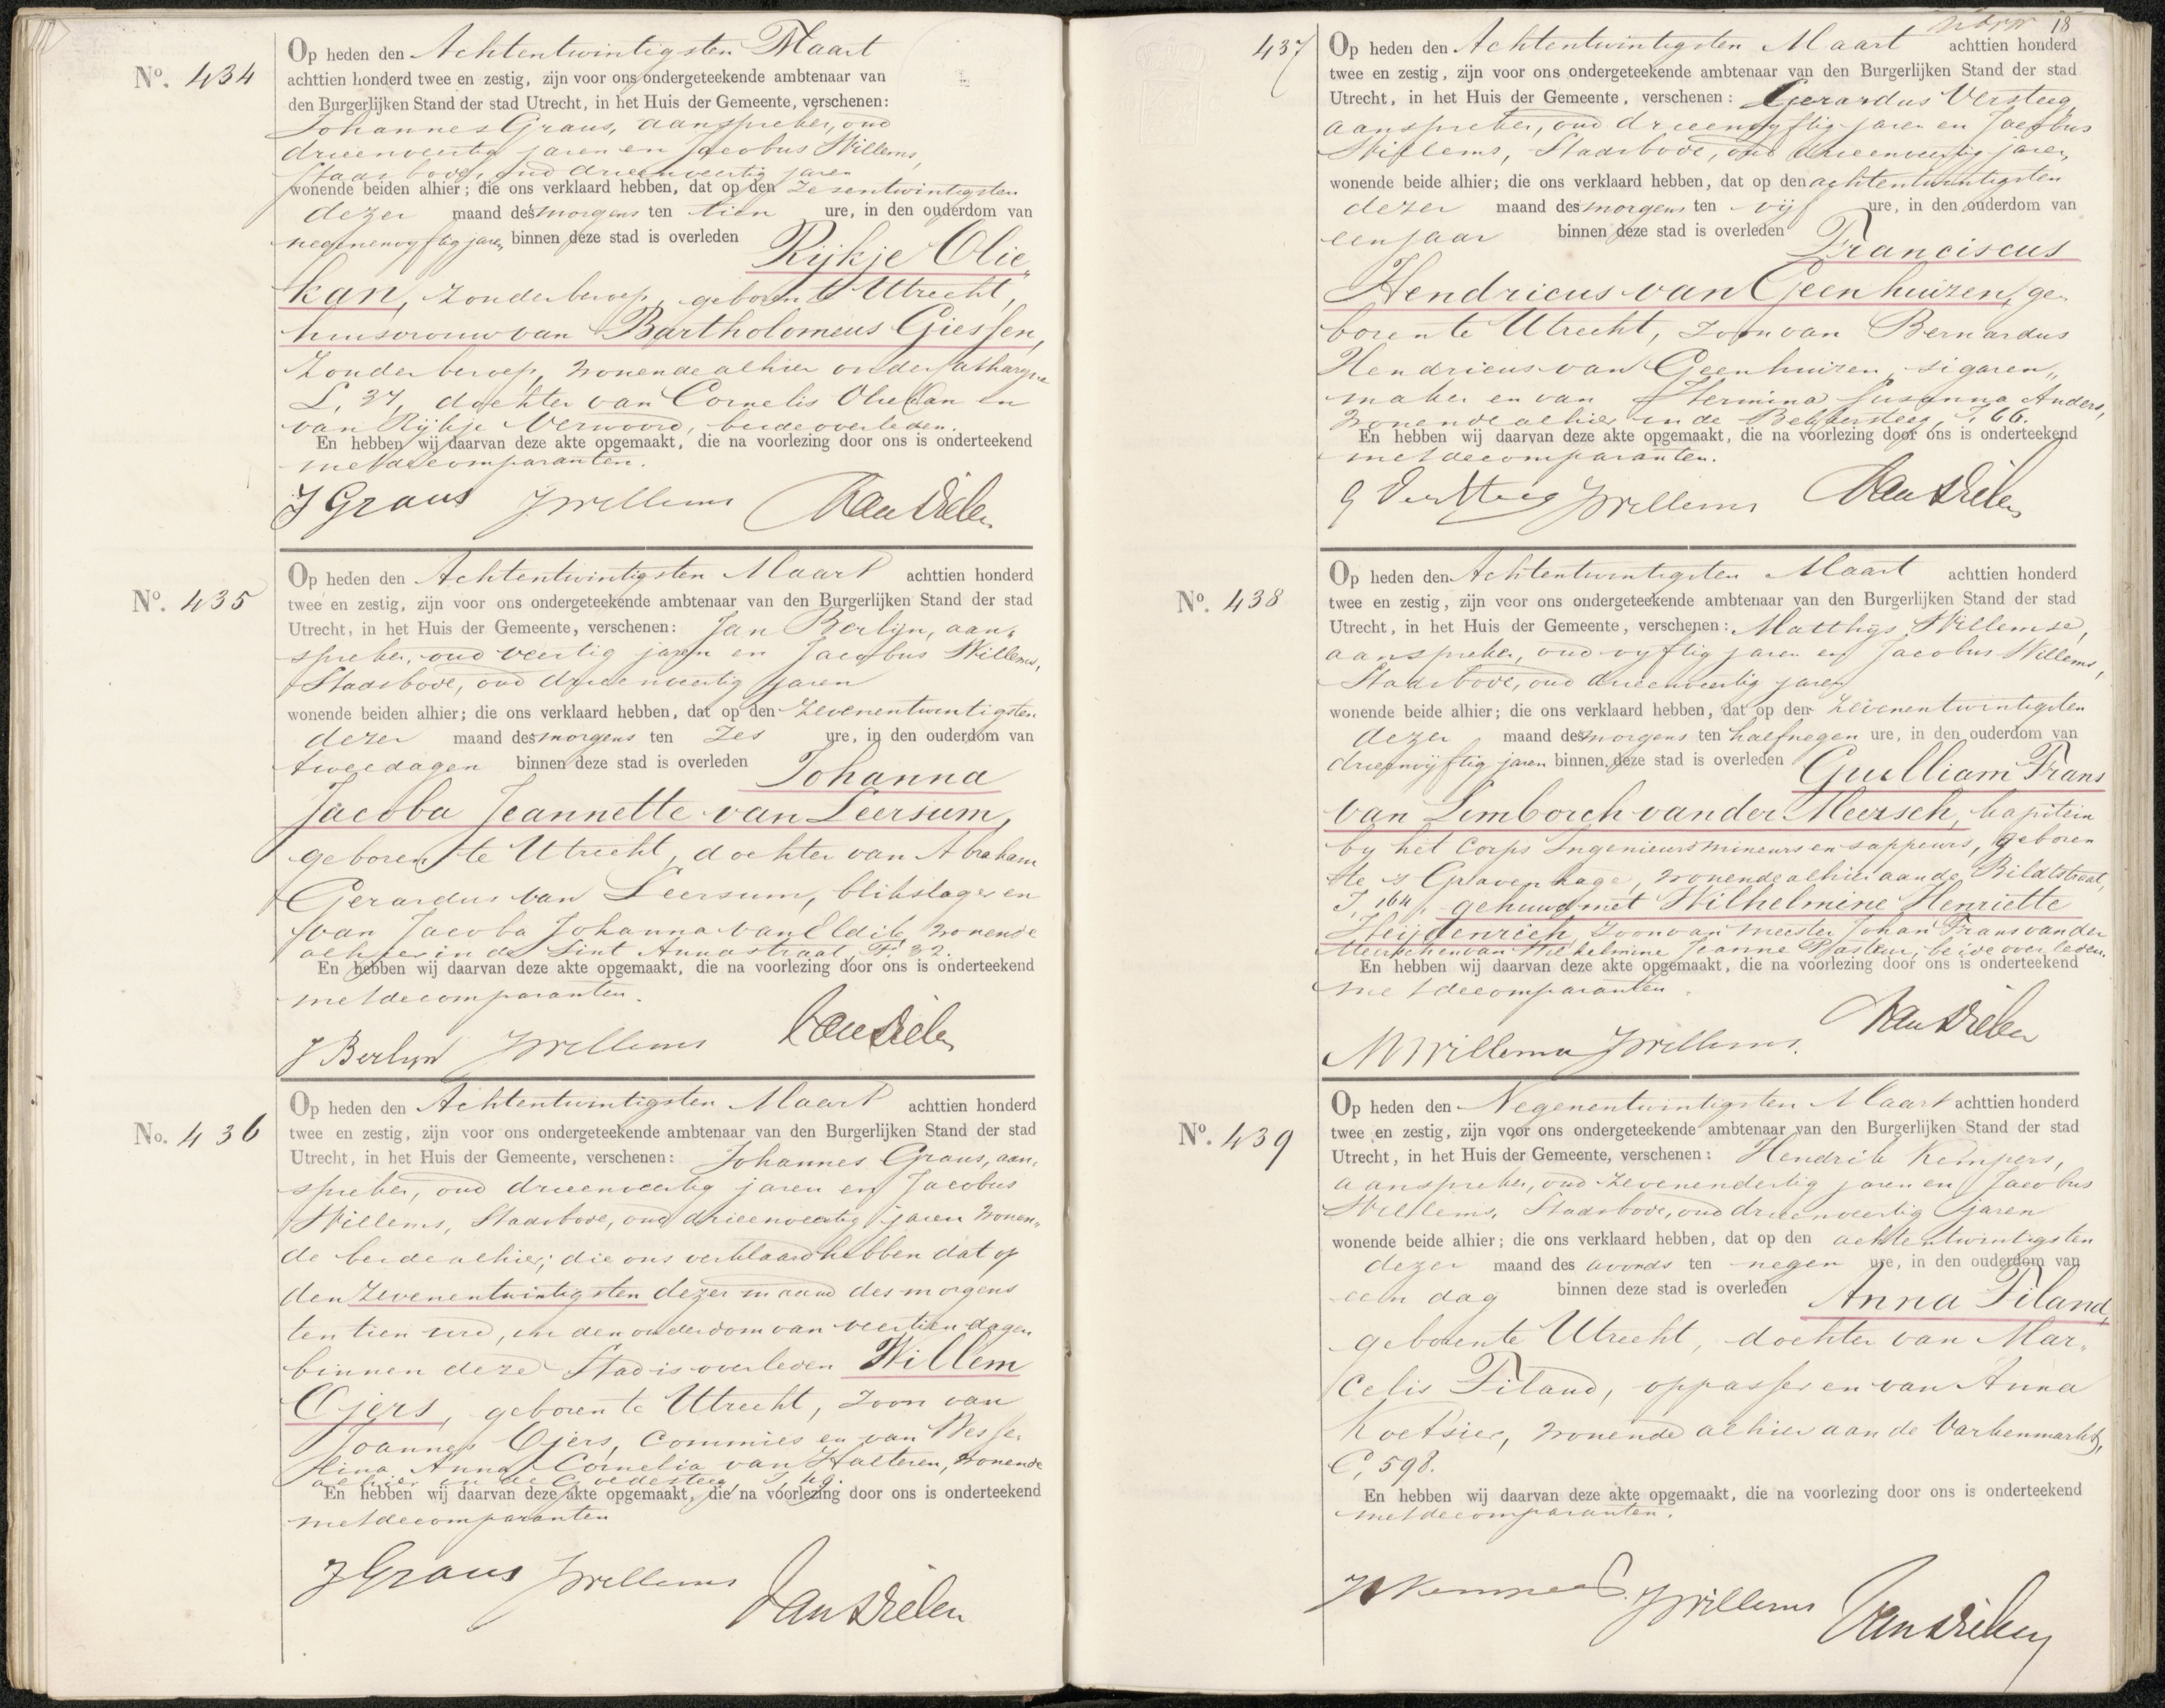 Nº. 434
Op heden den Achtentwintigsten Maart
achttien honderd twee en zestig, zijn voor ons ondergeteekende ambtenaar van
den Burgerlijken Stand der stad Utrecht, in het Huis der Gemeente, verschenen:
Johannes Graus, aanspreker, oud
drieenveertig jaren en Jacobus Willems,
Stadsbode, oud drieenveertig jaren
wonende beiden alhier; die ons verklaard hebben, dat op den zesentwintigsten
dezer maand des morgens ten tien ure, in den ouderdom van
negenenvyftig jaren binnen deze stad is overleden Rijkje Olie„
kan, zonder beroep, geboren te Utrecht,
huisvrouw van Bartholomeus Giessen,
zonder beroep, wonende alhier onder
L, 37, dochter van Cornelis Oliekan en
van Rijkje Verwoord, beide overleden.
En hebben wij daarvan deze akte opgemaakt, die na voorlezing door ons is onderteekend
met de comparanten.
J Graus JWillems Van Dielen
Nº. 435
Op heden den Achtentwintigsten Maart achttien honderd
twee en zestig, zijn voor ons ondergeteekende ambtenaar van den Burgerlijken Stand der stad
Utrecht, in het Huis der Gemeente, verschenen: Jan Berlijn, aan„
spreker, oud veertig jaren en Jacobus Willems,
Stadsbode, oud drieenveertig jaren
wonende beiden alhier; die ons verklaard hebben, dat op den zevenentwintigsten
dezer maand des morgens ten zes ure, in den ouderdom van
twee dagen binnen deze stad is overleden Johanna
Jacoba Jeannette van Leersum,
geboren te Utrecht, dochter van Abraham
Gerardus van Leersum, blikslager en
van Jacoba Johanna van Eldik, wonende
alhier in de Sint Annastraat, F. 32.
En hebben wij daarvan deze akte opgemaakt, die na voorlezing door ons is onderteekend
met de comparanten.
J Berlijn JWillems Van Dielen
No. 436
Op heden den Achtentwintigsten Maart achttien honderd
twee en zestig, zijn voor ons ondergeteekende ambtenaar van den Burgerlijken Stand der stad
Utrecht, in het Huis der Gemeente, verschenen: Johannes Graus, aan„
spreker, oud drieenveertig jaren en Jacobus
Willems, Stadsbode, oud drieenveertig jaren wonen„
de beide alhier; die ons verklaard hebben dat op
den zevenentwintigsten dezer maand des morgens
ten tien ure, in den ouderdom van veertien dagen
binnen deze Stad is overleden Willem
Ojers, geboren te Utrecht, zoon van
Joannes Ojers, Commies en van Wesse„
lina Anna Cornelia van Halteren, wonende
alhier in de Goedesteeg, I, 49.
En hebben wij daarvan deze akte opgemaakt, die na voorlezing door ons is onderteekend
met de comparanten
J Graus JWillems Van Dielen
18
437
Op heden den Achtentwintigsten Maart achttien honderd
twee en zestig, zijn voor ons ondergeteekende ambtenaar van den Burgerlijken Stand der stad
Utrecht, in het Huis der Gemeente, verschenen: Gerardus Versteeg,
aanspreker, oud drieenvyftig jaren en Jacobus
Willems, Stadsbode, oud drieenveertig jaren,
wonende beide alhier; die ons verklaard hebben, dat op den achtentwintigsten
dezer maand des morgens ten vijf ure, in den ouderdom van
een jaar binnen deze stad is overleden Franciscus
Hendricus van Geenhuizen, ge„
boren te Utrecht, zoon van Bernardus
Hendricus van Geenhuizen, sigaren„
maker en van Hermina Susanna Anders,
wonende alhier in de Bekkersteeg, I, 66.
En hebben wij daarvan deze akte opgemaakt, die na voorlezing door ons is onderteekend
met de comparanten.
G Versteeg JWillems Van Dielen
Nº. 438
Op heden den Achtentwintigsten Maart achttien honderd
twee en zestig, zijn voor ons ondergeteekende ambtenaar van den Burgerlijken Stand der stad
Utrecht, in het Huis der Gemeente, verschenen: Matthijs Willemse,
aanspreker, oud vyftig jaren en Jacobus Willems,
Stadsbode, oud drieenveertig jaren
wonende beide alhier; die ons verklaard hebben, dat op den zevenentwintigsten
dezer maand des morgens ten half negen ure, in den ouderdom van
drieenvijftig jaren binnen deze stad is overleden Guilliam Frans
van Limborch van der Meersch, kapitein
by het Corps Ingenieurs mineurs en sappeurs, geboren
te 's Gravenhage, wonende alhier aan de Biltstraat,
I, 164, gehuwd met Wilhelmine Henriette
Heijdenrich, zoon van meester Johan Frans van der
Meersch en van Wilhelmine Jeanne Pasteur, beide overleden.
En hebben wij daarvan deze akte opgemaakt, die na voorlezing door ons is onderteekend
met de comparanten.
M Willemse JWillems. Van Dielen
Nº. 439
Op heden den Negenentwintigsten Maart achttien honderd
twee en zestig, zijn voor ons ondergeteekende ambtenaar van den Burgerlijken Stand der stad
Utrecht, in het Huis der Gemeente, verschenen: Hendrik Kempers,
aanspreker, oud zevenendertig jaren en Jacobus
Willems, Stadsbode, oud drieenveertig jaren
wonende beide alhier; die ons verklaard hebben, dat op den achtentwintigsten
dezer maand des avonds ten negen ure, in den ouderdom van
een dag binnen deze stad is overleden Anna Filand,
geboren te Utrecht, dochter van Mar„
celis Filand, oppasser en van Anna
Koetsier, wonende alhier aan de Varkenmarkt,
C, 598.
En hebben wij daarvan deze akte opgemaakt, die na voorlezing door ons is onderteekend
met de comparanten.
H Kempers JWillems Van Dielen